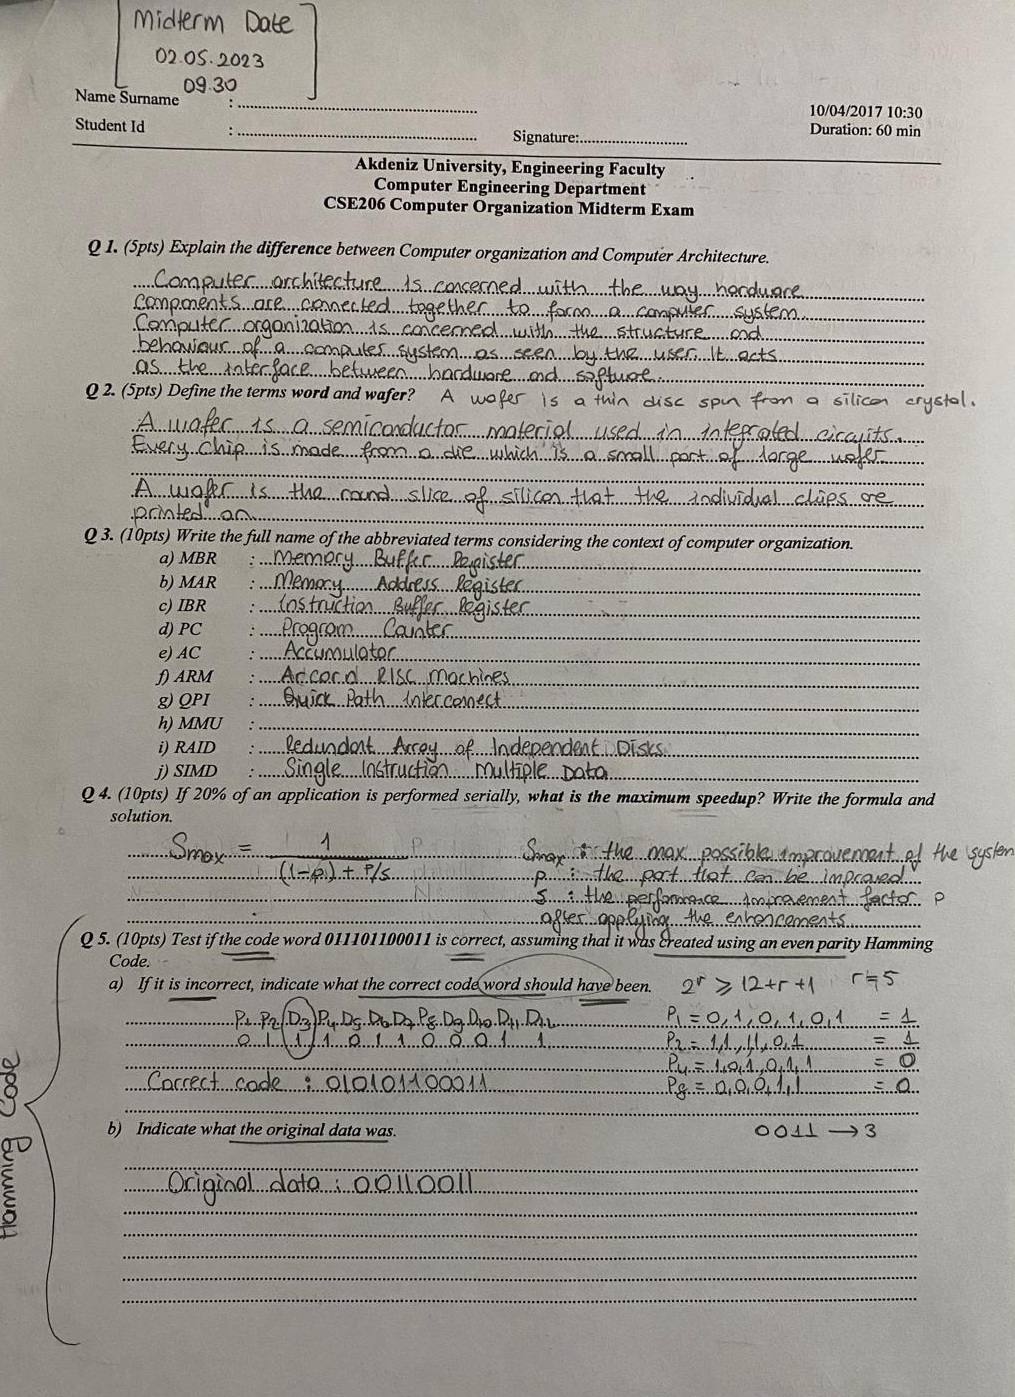 Midterm Date
02.05.2023
09.30
Name Surname : ........
Student Id : ........
Signature:........
10/04/2017 10:30
Duration: 60 min
Akdeniz University, Engineering Faculty
Computer Engineering Department
CSE206 Computer Organization Midterm Exam
Q 1. (5pts) Explain the difference between Computer organization and Computer Architecture.
Computer architecture is concerned with the way hardware
components are connected together to form a computer system.
Computer organization is concerned with the structure and
behaviour of a computer system as seen by the user. It acts
as the interface between hardware and software.
Q 2. (5pts) Define the terms word and wafer? A wafer is a thin disc spun from a silicon crystal.
A wafer is a semiconductor material used in integrated circuits.
Every chip is made from a die which is a small part of large wafer
A wafer is the round slice of silicon that the individual chips are
printed on
Q 3. (10pts) Write the full name of the abbreviated terms considering the context of computer organization.
a) MBR : Memory Buffer Register
b) MAR : Memory Address Register
c) IBR : Instruction Buffer Register
d) PC : Program Counter
e) AC : Accumulator
f) ARM : RISC Machines
g) QPI : Quick Path Interconnect
h) MMU :
i) RAID : Redundant Array of Independent Disks
j) SIMD : Single Instruction Multiple Data
Q 4. (10pts) If 20% of an application is performed serially, what is the maximum speedup? Write the formula and
solution.
Smax = 1 / (1-p) + P/s
Smax : the max possible improvement of the system
p : the part that can be improved
s : the performance improvement factor p
after applying the enhancements
Q 5. (10pts) Test if the code word 011101100011 is correct, assuming that it was created using an even parity Hamming
Code.
a) If it is incorrect, indicate what the correct code word should have been. 2^r ≥ 12+r+1 r=5
P1 P2 D3 P4 D5 D6 D7 P8 D9 D10 D11 D12
0 1 1 1 0 1 1 0 0 0 1 1
P1 = 0,1,0,1,0,1 = 1
P2 = 1,1,1,1,0,1 = 1
P4 = 1,0,1,0,1,1 = 0
P8 = 0,0,0,1,1 = 0
Correct code : 010101100011
b) Indicate what the original data was. 0011 → 3
Original data : 00110011
Hamming Code